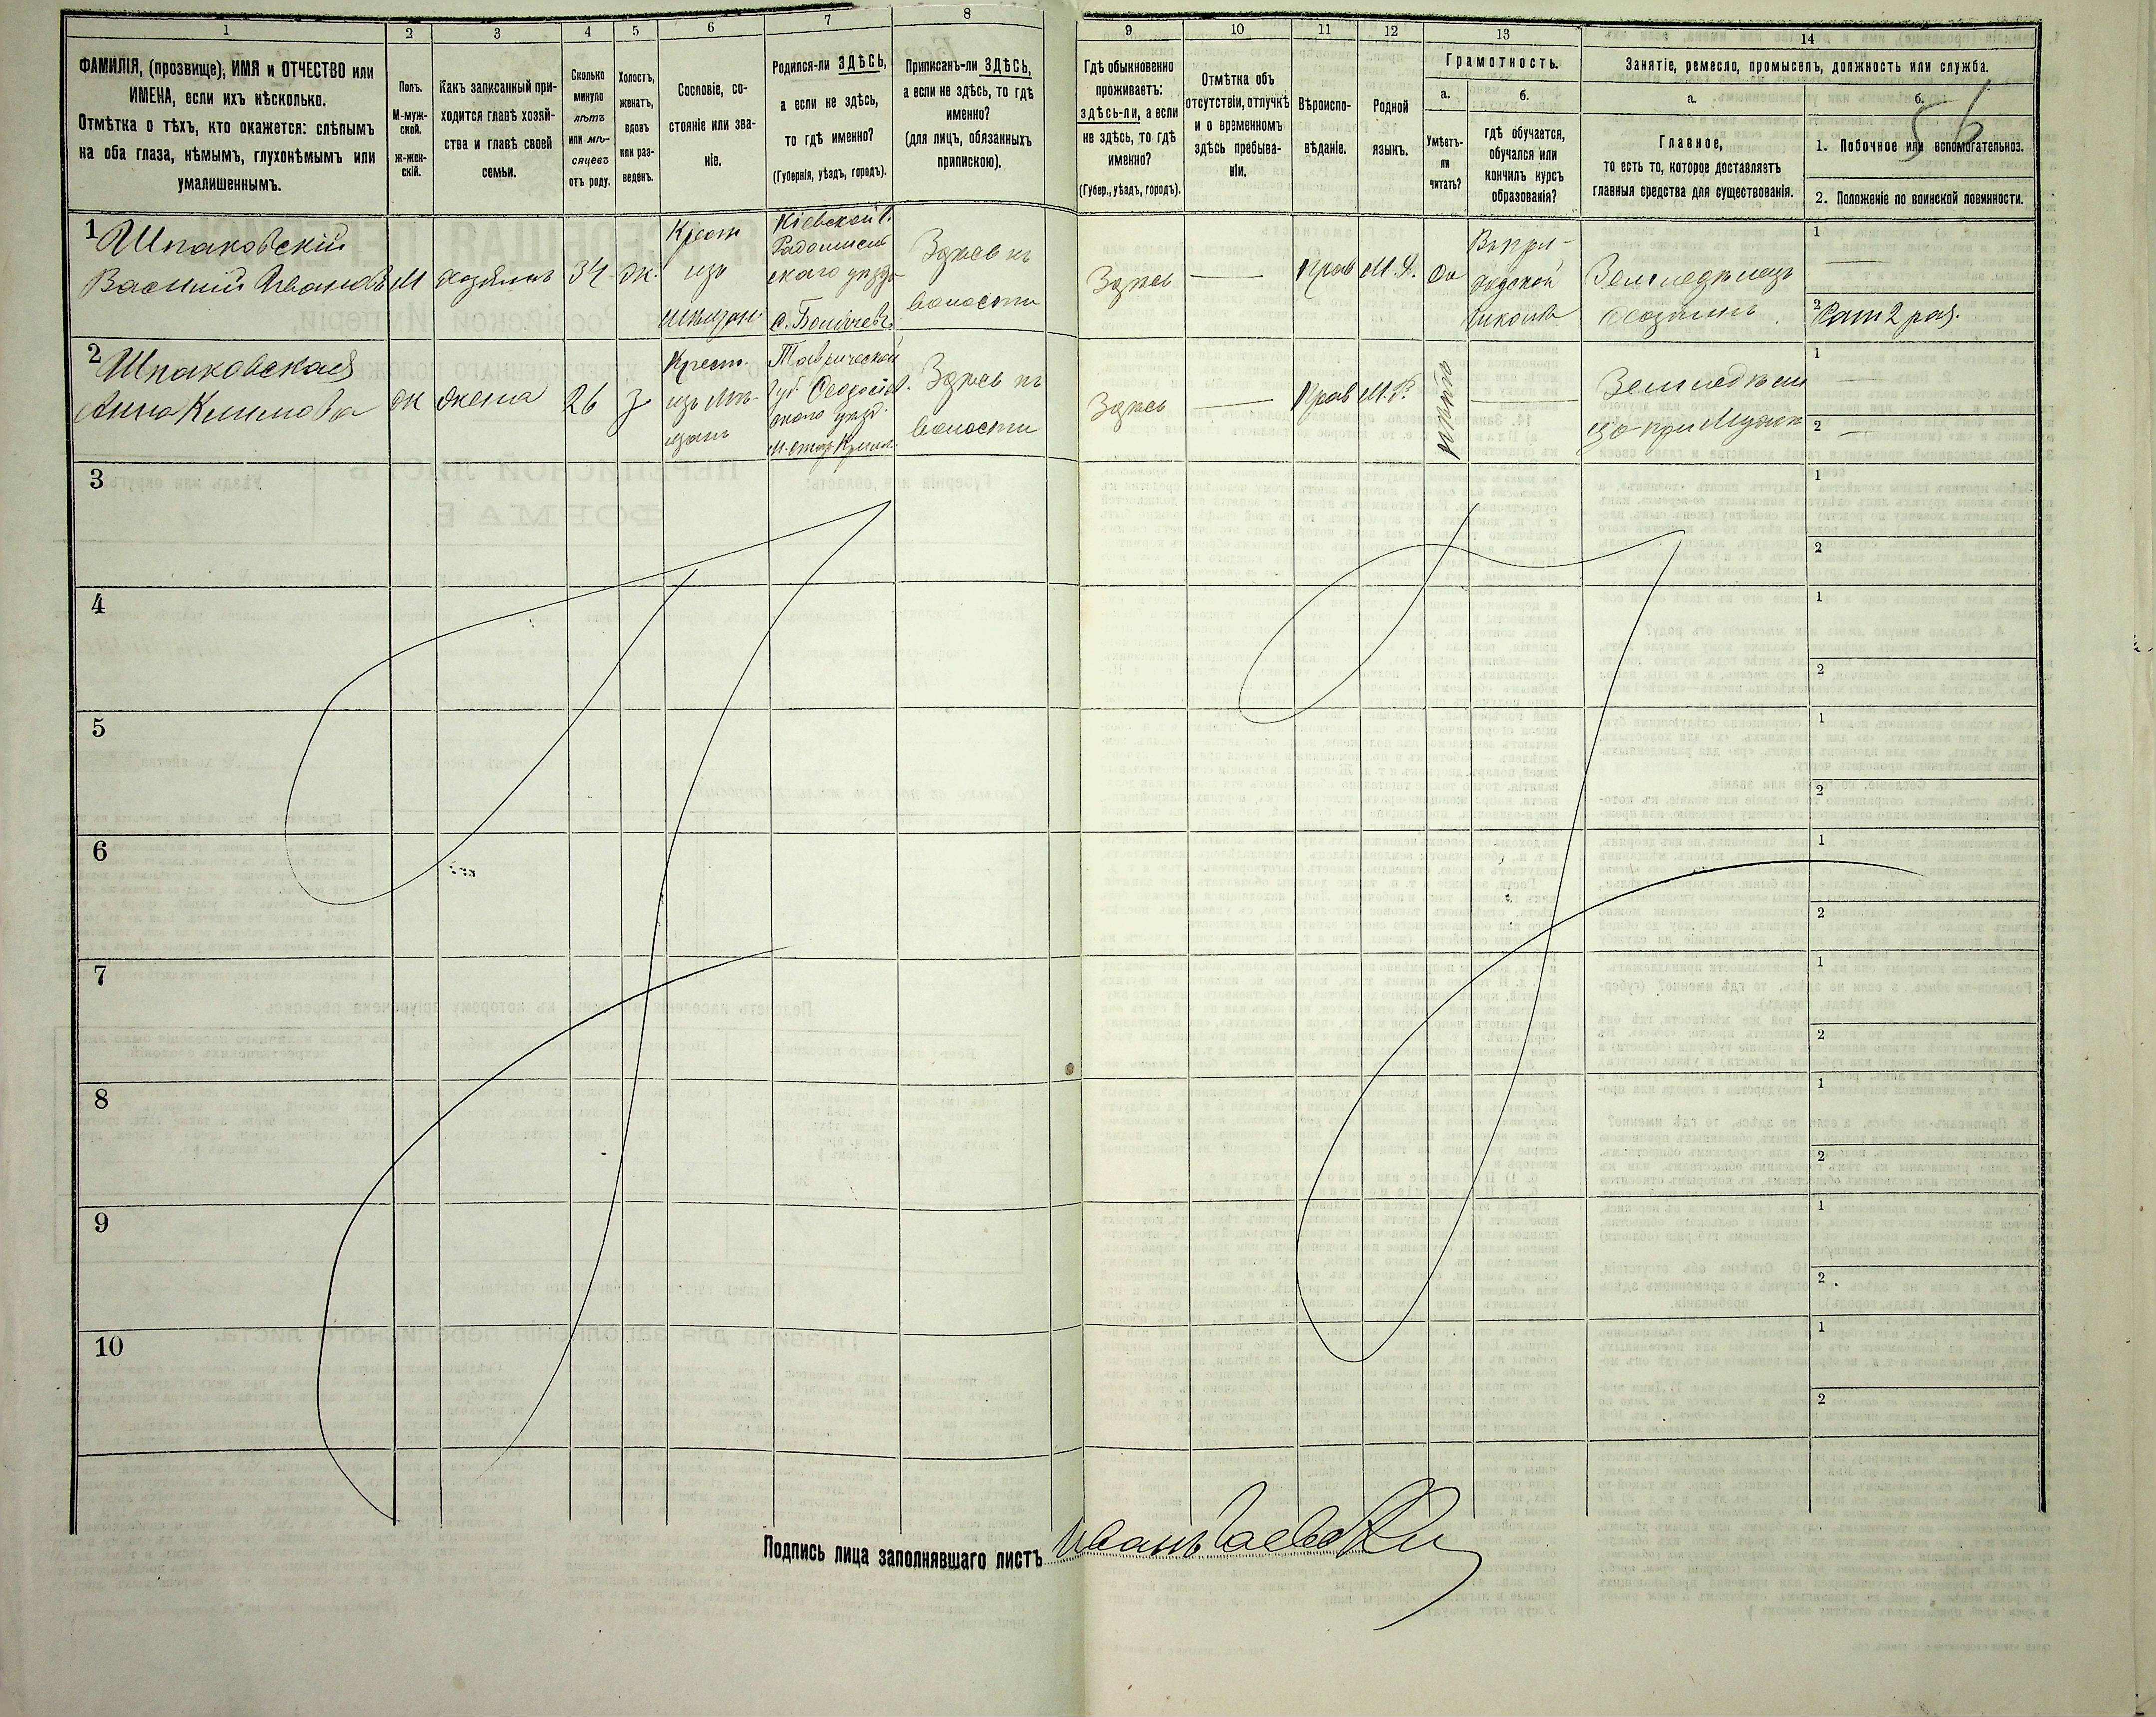 1
2
3
4
5
6
7
8
9
10
11
12
13
14
ФАМИЛІЯ, (прозвище), ИМЯ и ОТЧЕСТВО или
ИМЕНА, если ихъ нѣсколько.
Отмѣтка о тѣхъ, кто окажется: слѣпымъ
на оба глаза, нѣмымъ, глухонѣмымъ или
умалишеннымъ.
Полъ.
М-муж-
ской.
ж-жен-
скій.
Какъ записанный при-
ходится главѣ хозяй-
ства и главѣ своей
семьи.
Сколько
минуло
лѣтъ
или мѣ-
сяцевъ
отъ роду.
Холостъ,
женатъ,
вдовъ
или раз-
веденъ.
Сословіе, со-
стояніе или зва-
ніе.
Родился-ли ЗДѢСЬ,
а если не здѣсь,
то гдѣ именно?
(Губернія, уѣздъ, городъ).
Приписанъ-ли ЗДѢСЬ,
а если не здѣсь, то гдѣ
именно?
(для лицъ, обязанныхъ
припискою).
Гдѣ обыкновенно
проживаетъ:
здѣсь-ли, а если
не здѣсь, то гдѣ
именно?
(Губер., уѣздъ, городъ).
Отмѣтка объ
отсутствіи, отлучкѣ
и о временномъ
здѣсь пребыва-
ніи.
Вѣроиспо-
вѣданіе.
Родной
языкъ.
Грамотность.
а.
Умѣетъ-
ли
читать?
б.
гдѣ обучается,
обучался или
кончилъ курсъ
образованія?
Занятіе, ремесло, промыселъ, должность или служба.
а.
Главное,
то есть то, которое доставляетъ
главныя средства для существованія.
б.
56
1. Побочное или вспомогательное.
2. Положеніе по воинской повинности.
1
Шпаковскій
Василий Ивановъ
М
хозяинъ
34
ж.
Крест
изъ
мѣщан.
Кіевской г.
Радомысль
скаго уѣзда
с.
Здѣсь къ
волости
Здѣсь
—
Прав
М. Р.
да
Въ при-
ходской
школѣ
Земледѣлецъ
хозяинъ
1 —
2 Рат 2 раз.
2
Шпаковская
Анна Климова
ж
жена
26
з
Крест.
изъ мѣ-
щанъ
Таврической
губ Ѳеодосій
скаго уѣзд.
м. Стар Крым
Здѣсь къ
волости
Здѣсь
—
Прав
М. Р.
нѣтъ
—
Земледѣли
ца при Мужѣ
1 —
2 —
3
1
2
4
1
2
5
1
2
6
1
2
7
1
2
8
1
2
9
1
2
10
1
2
Подпись лица заполнявшаго листъ Иванъ